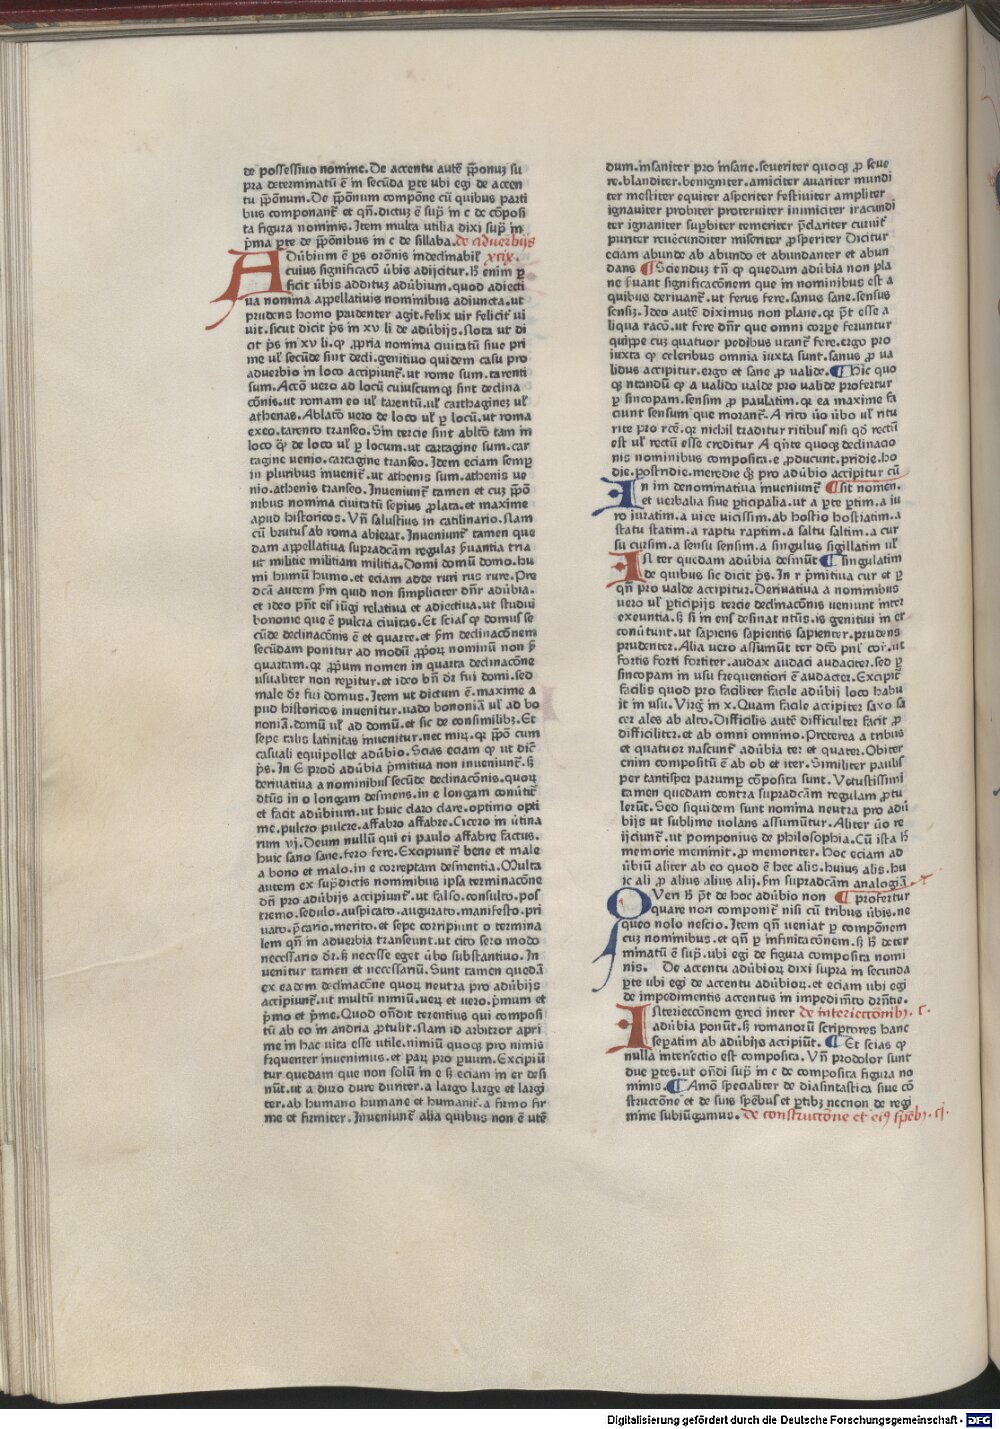 de possessiuo nomine. De accentu autē p̄ponuʒ su
pra determinatū ē in secūda ꝑte ubi egi de accen
tu p̄ponum. De p̄ponum compone cū quibus parti
bus componant᷑ et qn̄. dictuʒ ē sup̄ in c de cōposi
ta figura nominis. Item multa utilia dixi sup̄ in
p̄ma ꝑte de p̄ponibus in c de sillaba. de aduerbijs
ADūbium ē ps orōnis indeclinabil᷑ xcix.
cuius significacō ūbis adijcitur. H̄ enim ꝑ
ficit ūbis addituʒ adūbium. quod adiecti
ua nomina appellatiuis nominibus adiuncta. ut
prudens homo prudenter agit. felix uir felicit᷑ ui
uit. sicut dicit p̄s in xv li de adūbijs. Nota ut di
cit p̄s in xv li. ꝙ ꝓpria nomina ciuitatū siue pri
me ul᷑ secūde sint decli. genitiuo quidem casu pro
aduerbio in loco accipiunt᷑. ut rome sum. tarenti
sum. Accō uero ad locū cuiuscumqꝫ sint declina
cōnis. ut romam eo ul᷑ tarentū. ul᷑ carthagineʒ ul᷑
athenas. Ablatō uero de loco ul᷑ ꝑ locū. ut roma
exeo. tarento transeo. Sin tercie sint abltō tam in
loco qꝫ de loco ul᷑ ꝑ locum. ut cartagine sum. car
tagine uenio. cartagine transeo. Idem eciam semꝑ
in pluribus inuenit᷑. ut athenis sum. athenis ue
nio. athenis transeo. Inueniunt᷑ tamen et cuʒ p̄pō
nibus nomina ciuitatū sepius ꝓlata. et maxime
apud historicos. Vn̄ salustius in catilinario. Nam
cū brutus ab roma abierat. Inueniunt᷑ tamen que
dam appellatiua supradcām regulaʒ s̄uantia tria
ut militie militiam militia. Domi domū domo. hu
mi humū humo. et eciam adde ruri rus rure. Pre
dcā autem s̄m quid non simpliciter dn̄r adūbia.
et ideo pn̄t eis iūgi relatiua et adiectiua. ut studui
bononie que ē pulcra ciuitas. Et scias ꝙ domus se
cūde declinacōnis ē et quarte. et s̄m declinacōnem
secūdam ponitur ad modū ꝓpꝝ nominū non s̄
quartam. qꝛ ꝓp̄um nomen in quarta declinacōne
usualiter non reꝑitur. et ideo bn̄ dr̄ fui domi. sed
male dr̄ fui domus. Item ut dictum ē. maxime a
pud historicos inuenitur. uado bononiā ul᷑ ad bo
noniā. domū ul᷑ ad domū. et sic de consimilibʒ. Et
sepe talis latinitas inuenitur. nec mirꝝ. qꝛ p̄pō cum
casuali equipollet adūbio. Scias eciam ꝙ ut dic̄
p̄s. In E prod᷑ adūbia p̄mitiua non inueniunt᷑. sʒ
deriuatiua a nominibus secūde declinacōnis. quoꝝ
dtūs in o longam desinens. in e longam conūtit᷑
et facit adūbium. ut huic claro clare. optimo opti
me. pulcro pulcre. affabro affabre. Cicero in ūtina
rum vj. Deum nullū qui ei paulo affabre factus.
huic sano sane. fero fere. Excipiunt᷑ bene et male
a bono et malo. in e correptam desinentia. Multa
autem ex sup̄dictis nominibus ipsa terminacōne
dn̄i pro adūbijs accipiunt᷑. ut falso. consulto. pos
tremo. sedulo. auspicato. augurato. manifesto. pri
uato. p̄cario. merito. et sepe corripiunt o termina
lem qn̄ in aduerbia transeunt. ut cito sero modo
necessario dr̄. sʒ necesse eget ūbo substantiuo. In
uenitur tamen et necessariū. Sunt tamen quedā
ex eadem declinacōne quoꝝ neutra pro adūbijs
accipiunt᷑. ut multū nimiū. ueꝝ et uero. p̄mum et
p̄mo et p̄me. Quod on̄dit terentius qui composi
tū ab eo in andria ꝓtulit. Nam id arbitror apri
me in hac uita esse utile. nimiū quoqꝫ pro nimis
frequenter inuenimus. et paꝝ pro ꝑuum. Excipiū
tur quedam que non solū in e sʒ eciam in er desi
nūt. ut a duro dure duriter. a largo large et largi
ter. ab humano humane et humanit᷑. a firmo fir
me et firmiter. Inueniunt᷑ alia quibus non ē ute
dum. insaniter pro insane. seueriter quoqꝫ ꝓ seue
re. blanditer. benigniter. amiciter auariter mundi
ter mestiter equiter asperiter festiuiter ampliter
ignauiter probiter proteruiter inimiciter iracundi
ter ignaniter suꝑbiter temeriter p̄clariter curuit᷑
puriter reuēcunditer miseriter ꝓsperiter Dicitur
eciam abunde ab abundo et abundanter et abun
dans ¶Sciendum tn̄ ꝙ quedam adūbia non pla
ne s̄uant significacōnem que in nominibus est a
quibus deriuant᷑. ut ferus fere. sanus sane. sensus
sensiʒ. Ideo autē diximus non plane. qꝛ p̄t esse a
liqua racō. ut fere dn̄r que omni corpe feruntur
quippe cuʒ quatuor pedibus utant᷑ fere. ergo pro
iuxta qꝛ celeribus omnia iuxta sunt. sanus ꝓ ua
lidus accipitur. ergo et sane ꝓ ualide. ¶Hic quo
qꝫ ntandū ꝙ a ualido ualde pro ualide profertur
ꝑ sincopam. sensim ꝓ paulatim. qꝛ ea maxime fa
ciunt sensum que morant᷑. A rito ūo ūbo ul᷑ ritu
rite pro rcē. qꝛ nichil traditur ritibus nisi qd̄ rectū
est ul᷑ rectū esse creditur A qn̄te quoqꝫ declinacio
nis nominibus composita. e ꝓducunt. pridie. ho
die. postridie. meredie qꝫ pro adūbio accipitur cū
In im denominatiua inueniunt᷑ ¶sit nomen.
et uerbalia siue ꝑticipalia. ut a ꝑte ꝑtim. a iu
ro iuratim. a uice uicissim. ab hostio hostiatim. a
statu statim. a raptu raptim. a saltu saltim. a cur
su cursim. a sensu sensim. a singulus sigillatim ul᷑
IN ter quedam adūbia desinūt ¶singulatim
de quibus sic dicit p̄s. In r p̄mitiua cur et ꝑ
qn̄ pro ualde accipitur. Deriuatiua a nominibus
uero ul᷑ ꝑticipijs tercie declinacōnis ueniunt inter
exeuntia. sʒ si in ens desinat ntūs. is genitiui in er
conūtunt. ut sapiens sapientis sapienter. prudens
prudenter. Alia uero assumūt ter dtcō pnl᷑ coi᷑. ut
fortis forti fortiter. audax audaci audaciter. sed ꝑ
sincopam in usu frequentiori ē audacter. Excipit᷑
facilis quod pro faciliter facile adūbij loco habu
it in usu. Virg᷑ in x. Quam facile accipiter saxo sa
cer ales ab alto. Difficilis autē difficulter facit ꝓ
difficiliter. et ab omni omnimo. Preterea a tribus
et quatuor nascunt᷑ adūbia ter et quater. Obiter
enim compositū ē ab ob et iter. Similiter paulis
per tantisper parumꝑ cōposita sunt. Vetustissimi
tamen quedam contra supradcām regulam ꝓtu
lerūt. Sed siquidem sunt nomina neutra pro adū
bijs ut sublime uolans assumūtur. Aliter ūo re
ijciunt᷑. ut pomponius de philosophia. Cū ista h̄
memorie meminit. ꝓ memoriter. Hoc eciam ad
ūbiū aliter ab eo quod ē hec alis. huius alis. hu
ic ali ꝓ alius alius alij. s̄m supradcām analogiā.
QVeri h̄ p̄t de hoc adūbio non ¶profertur
quare non componit᷑ nisi cū tribus ūbis. ne
queo nolo nescio. Item qn̄ ueniat ꝑ componem
cuʒ nominibus. et qn̄ ꝑ infinitacōnem. sʒ h̄ deter
minatū ē sup̄. ubi egi de figura composita nomi
nis. De accentu adūbioꝝ dixi supra in secunda
ꝑte ubi egi de accentu adūbioꝝ. et eciam ubi egi
de impedimentis accentus in impedim̄to dr̄ntie.
INterieccōnem greci inter de interieccōnibʒ. c.
adūbia ponūt. sʒ romanorū scriptores hanc
seꝑatim ab adūbijs accipiūt. ¶Et scias ꝙ
nulla interiectio est composita. Vn̄ prodolor sunt
due ꝑtes. ut on̄di sup̄ in c de composita figura no
minis. ¶Amō specialiter de diasintastica siue cō
structōne et de suis spēbus et ꝑtibʒ necnon de regi
mine subiūgamus. de constructōne et eiꝰ spēbʒ. cj.
Digitalisierung gefördert durch die Deutsche Forschungsgemeinschaft - DFG